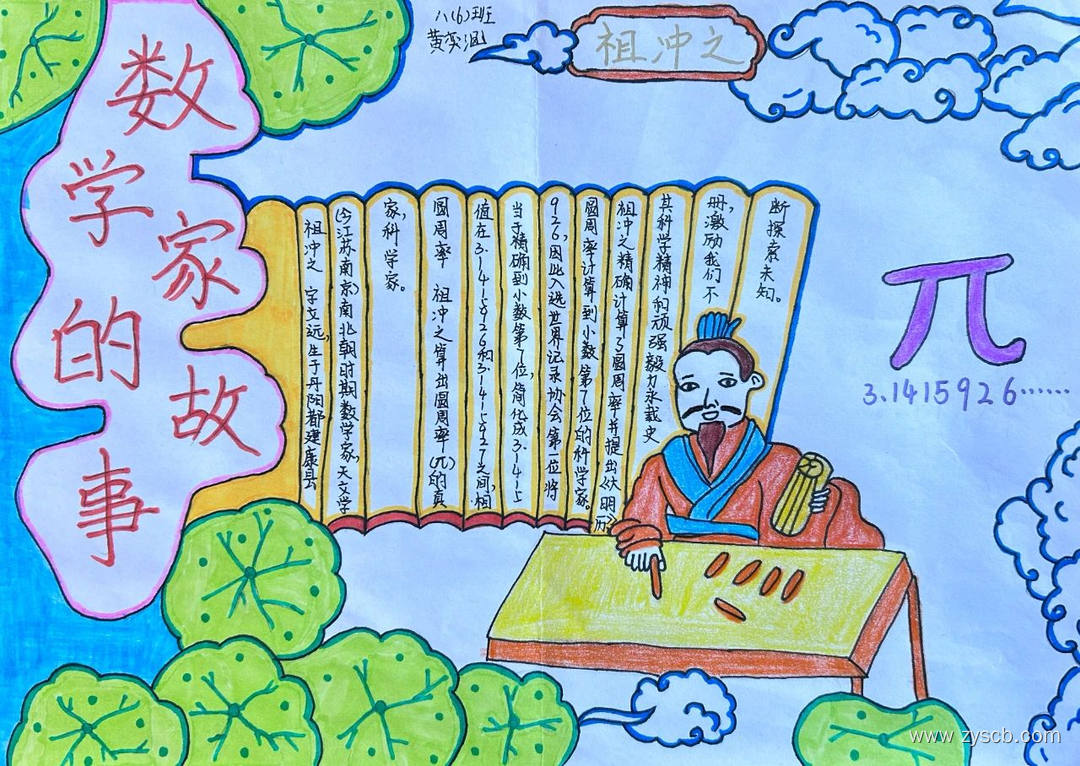 数学家的故事
八(6)班
黄
祖冲之
祖冲之 字文远,生于丹阳郡建康县
(今江苏南京)南北朝时期数学家,天文学
家,科学家。
圆周率 祖冲之算出圆周率(π)的真
值在3.1415926和3.1415927之间,相
当于精确到小数第7位,简化成3.1415
926,因此入选世界记录协会第一位将
圆周率计算到小数第7位的科学家。
祖冲之精确计算了圆周率并提出《大明历》
其科学精神和顽强毅力永载史
册,激励我们不
断探索未知。
π
3.1415926……
www.zyscb.com